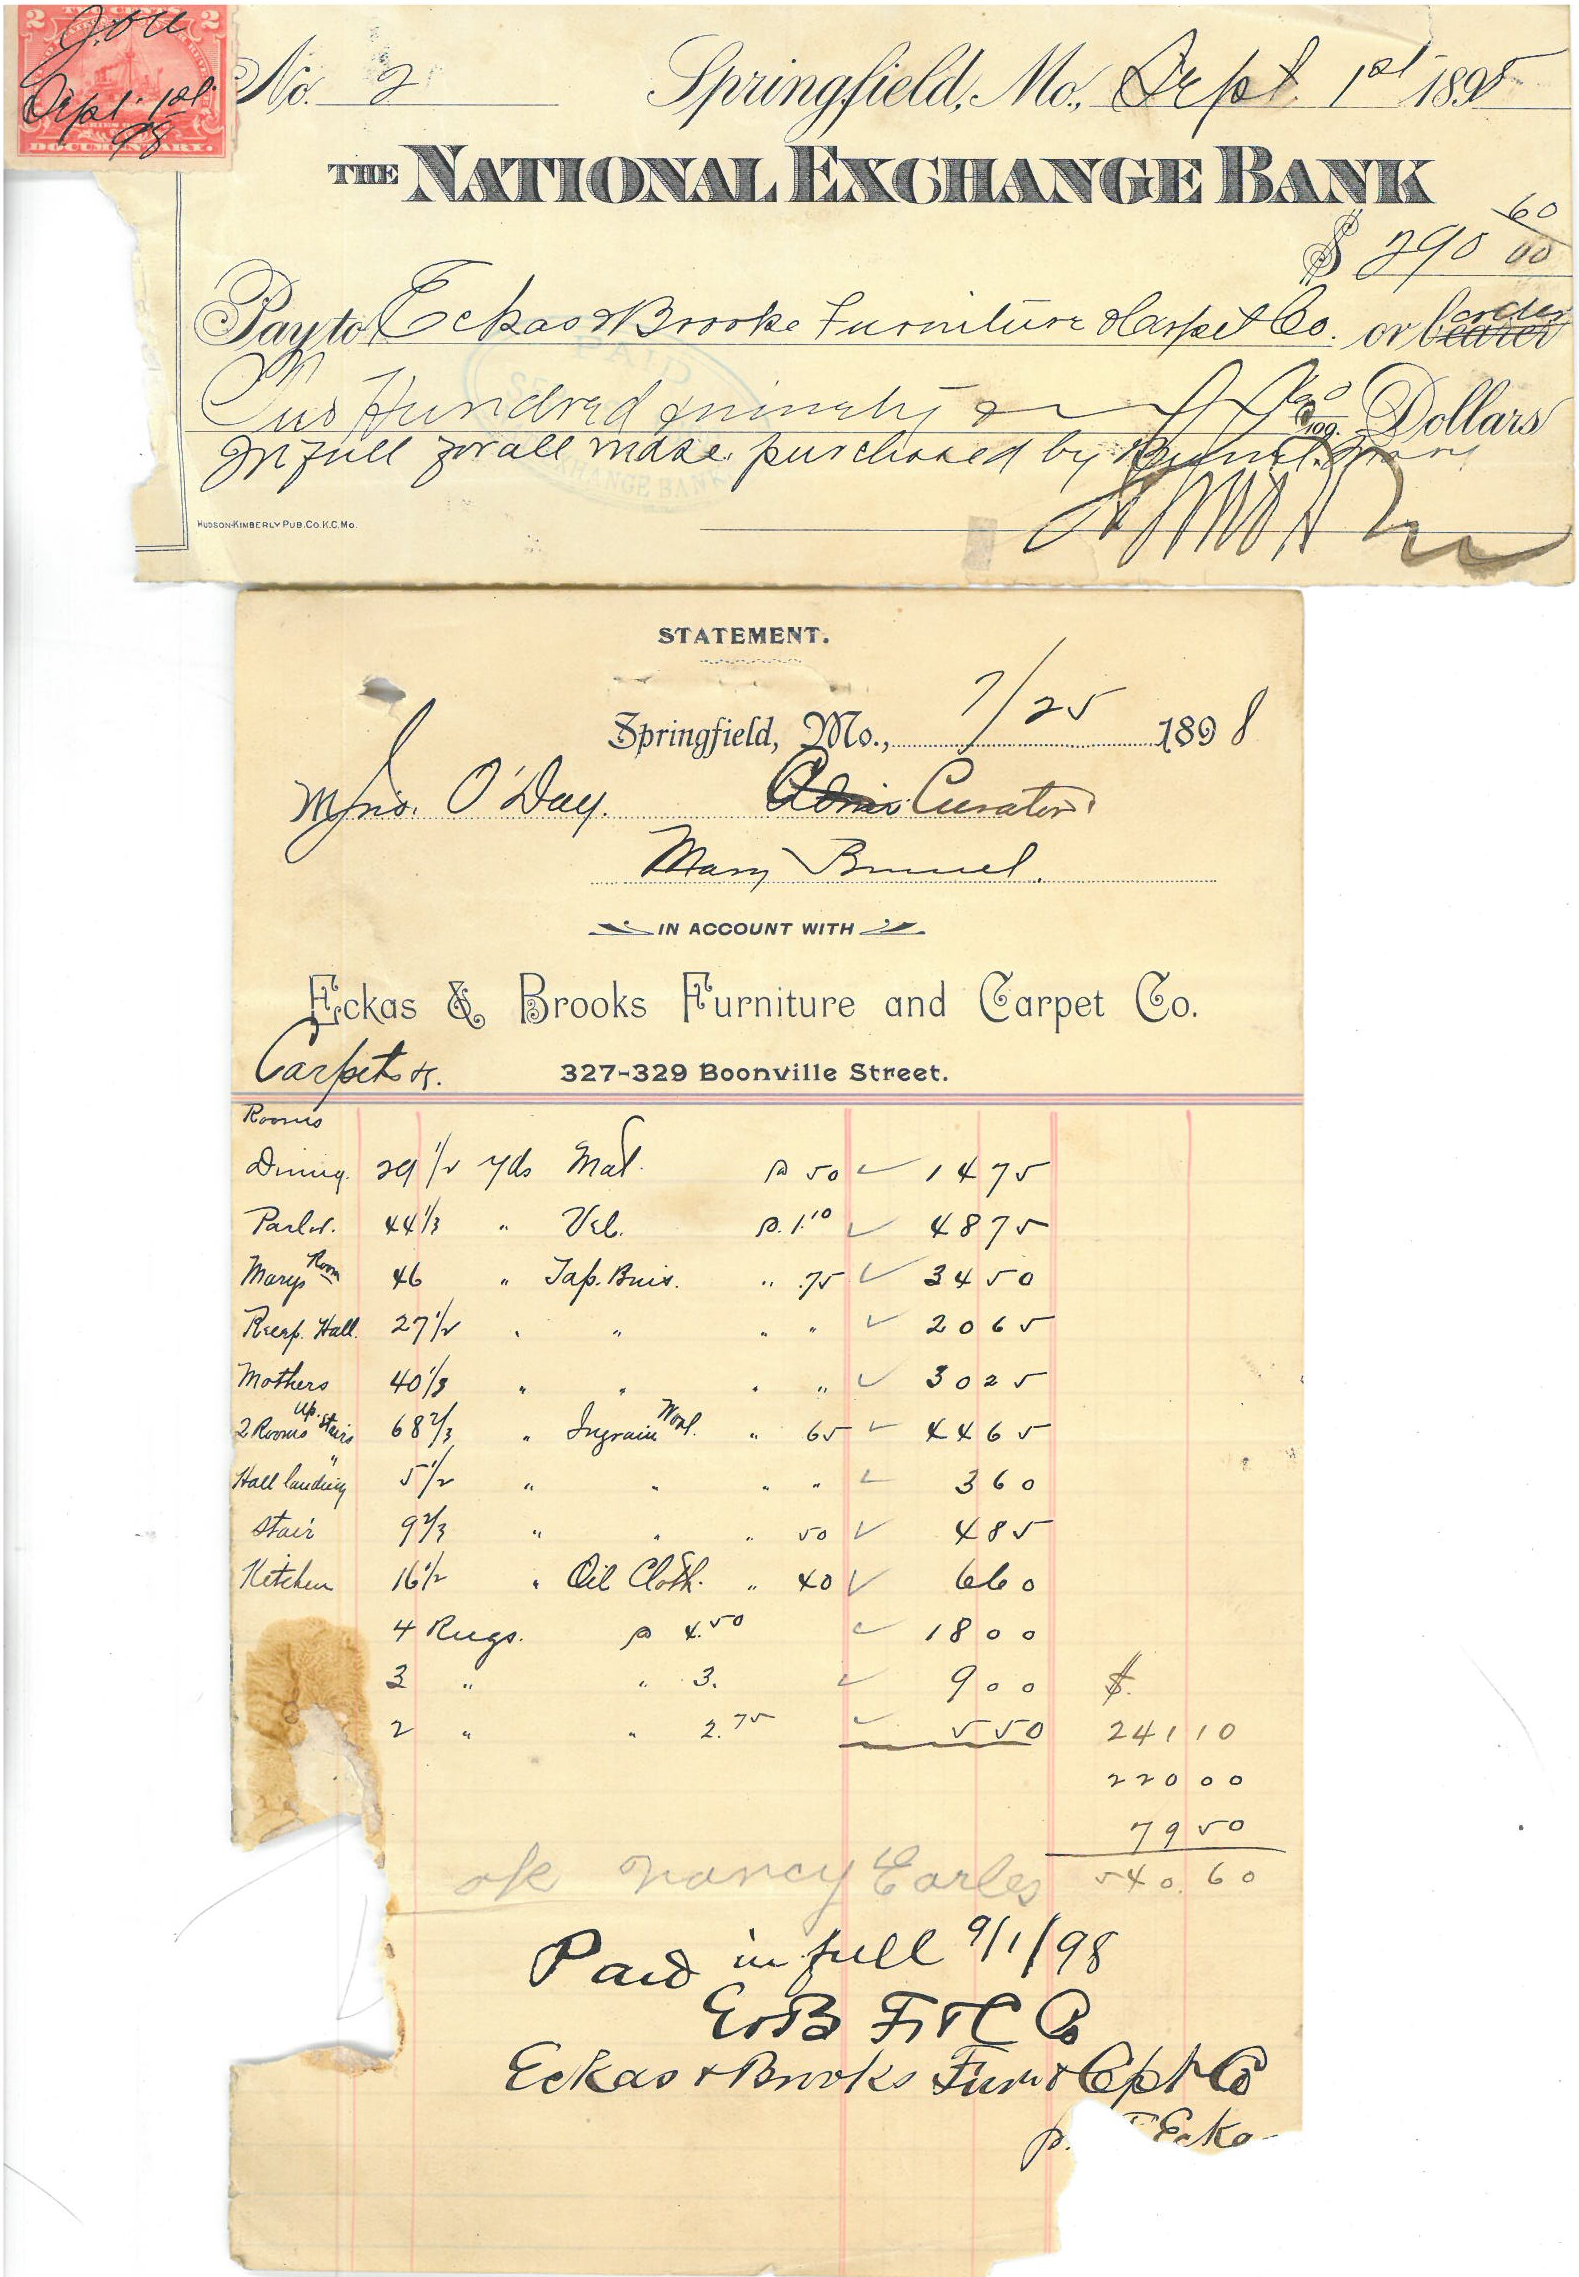 TWO CENTS
2 2
J. O'D
Sept. 1st.
98
DOCUMENTARY.
No. 2 Springfield, Mo., Sept. 1st 1898
THE NATIONAL EXCHANGE BANK
$ 290 60/00
Pay to Eckas & Brooke Furniture & Carpet Co. or bearer order
PAID
Two Hundred & ninety & 60/100. Dollars
In full for all mdse. purchased by Mary
EXCHANGE BANK
HUDSON-KIMBERLY PUB. CO. K.C. MO.
STATEMENT.
Springfield, Mo., 7/25 1898
M Jno. O'Day. Admr. Curator
Mary Brunel.
IN ACCOUNT WITH
Eckas & Brooks Furniture and Carpet Co.
Carpets &. 327-329 Boonville Street.
Rooms
Dining. 29 1/2 yds Mat. @ 50 ✓ 14 75
Parlor. 44 1/3 " Vel. @ 1.10 ✓ 48 75
Marys Room 46 " Tap. Brus. " .75 ✓ 34 50
Recep. Hall. 27 1/2 " " " " ✓ 20 65
Mothers 40 1/3 " " " " ✓ 30 25
2 Rooms up. Stairs 68 2/3 " Ingrain Wool. " 65 ✓ 44 65
Hall landing " 5 1/2 " " " " ✓ 3 60
Stair 9 2/3 " " " 50 ✓ 4 85
Kitchen 16 1/2 " Oil Cloth. " 40 ✓ 6 60
4 Rugs. @ 4.50 ✓ 18 00
3 " " 3. ✓ 9 00 $.
2 " " 2.75 ✓ 5 50 241 10
220 00
79 50
ok Nancy Earles 540.60
Paid in full 9/1/98
E & B F & C Co
Eckas & Brooks Furn & Cpt Co
p. Ecka